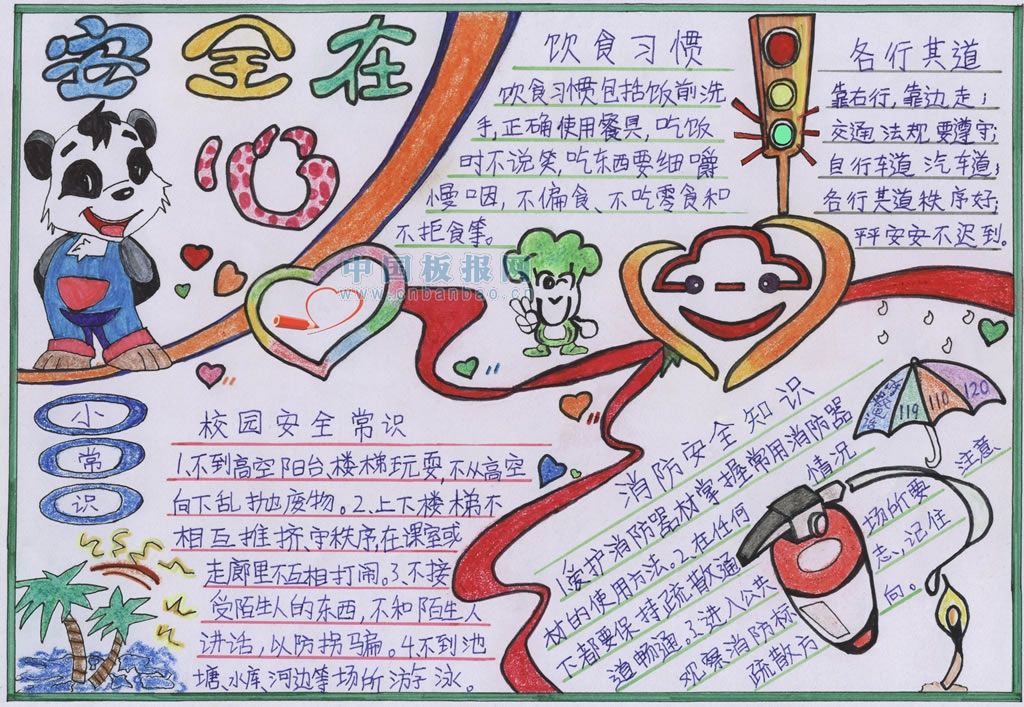 安全在
心
饮食习惯
饮食习惯包括饭前洗
手,正确使用餐具,吃饭
时不说笑,吃东西要细嚼
慢咽,不偏食、不吃零食和
不拒食等。
各行其道
靠右行,靠边走;
交通法规要遵守;
自行车道汽车道;
各行其道秩序好;
平平安安不迟到。
中国板报网
www.cnbanbao.cn
小
常
识
校园安全常识
1.不到高空阳台、楼梯玩耍,不从高空
向下乱抛废物。2.上下楼梯不
相互推挤、守秩序,在课室或
走廊里不互相打闹。3.不接
受陌生人的东西,不和陌生人
讲话,以防拐骗。4.不到池
塘、水库、河边等场所游泳。
119 110 120
消防安全知识
1.爱护消防器材掌握常用消防器
材的使用方法。2.在任何情况
下都要保持疏散通
道畅通。3.进入公共场所要注意
观察消防标志、记住
疏散方向。